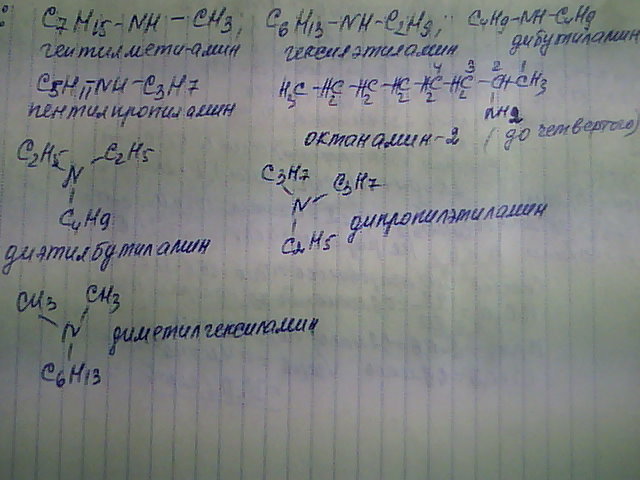 C7H15-NH-CH3; C6H13-NH-C2H9; C4H9-NH-C4H9
гептилметиламин гексилэтиламин дибутиламин
C5H11NH-C3H7
пентилпропиламин
4 3 2 1
H3C-H2C-H2C-H2C-H2C-H2C-CH-CH3
NH2
октанамин-2 (до четвертого)
C2H5 C2H5
N
C4H9
диэтилбутиламин
C3H7 C3H7
N
C2H5
дипропилэтиламин
CH3 CH3
N
C6H13
диметилгексиламин